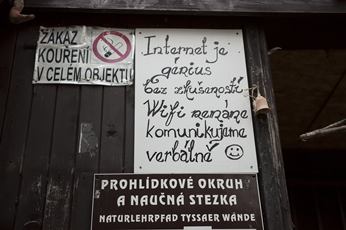 ZÁKAZ
KOUŘENÍ
V CELÉM OBJEKTU
Internet je
génius
bez zkušeností
Wifi nemáme
komunikujeme
verbálně
PROHLÍDKOVÉ OKRUH
A NAUČNÁ STEZKA
NATURLEHRPFAD TYSSAER WÄNDE